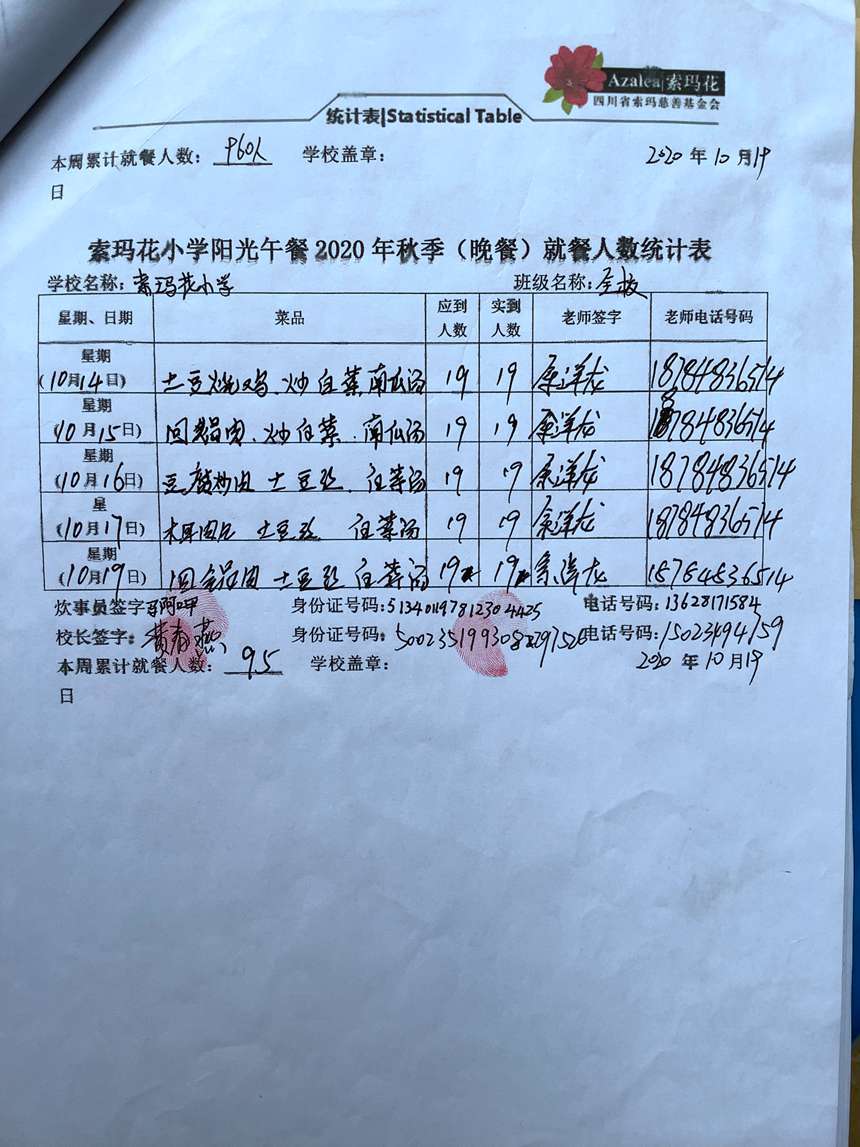 Azalea 索玛花
四川省索玛慈善基金会
统计表|Statistical Table
本周累计就餐人数： 960人 学校盖章： 2020 年 10 月19
日
索玛花小学阳光午餐 2020 年秋季（晚餐）就餐人数统计表
学校名称：索玛花小学 班级名称：全校
星期、日期 菜品 应到人数 实到人数 老师签字 老师电话号码
星期
（10月14日） 土豆烧鸡、炒白菜 南瓜汤 19 19 18784836514
星期
（10月15日） 回锅肉、炒白菜、南瓜汤 19 19 18784836514
星期
（10月16日） 豆腐炒肉 土豆丝、白菜汤 19 19 18784836514
星
（10月17日） 木耳肉片 土豆丝 白菜汤 19 19 18784836514
星期
（10月19日） 回锅肉 土豆丝 白菜汤 19 19 18784836514
炊事员签字： 身份证号码：513401197812304425 电话号码：13628171584
校长签字：黄春燕 身份证号码： 电话号码：15023494759
本周累计就餐人数： 95 学校盖章： 2020 年 10 月19
日